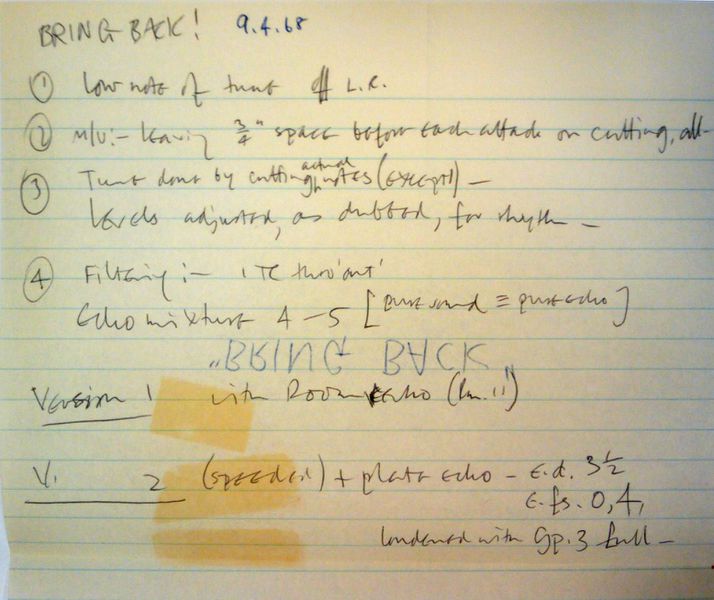 BRING BACK! 9.4.68
① Low note of tune off L.R.
② M/U:- Leaving 3/4" space before each attack on cutting, all-
③ Tune done by cutting actual notes (except 1) —
Levels adjusted, as dubbed, for rhythm —
④ Filtering:- 1TC thro'out'
Echo mixture 4-5 [pure sound ≡ pure echo]
"BRING BACK"
Version 1 with Room echo (Rm. 11)
V. 2 (speeded) + plate echo - E.d. 3½
E.fs. 0, 4,
with Gp.3 full —